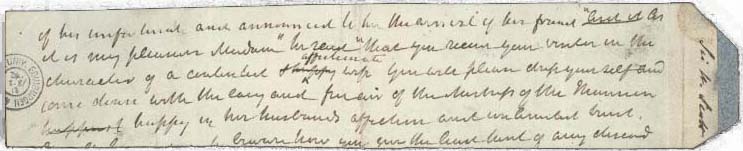 of his unfortunate and announced to her the arrival of his friend "And it is
it is my pleasure Madam" he said "that you receive your visitor in the
affectionate
character of a contented happy wife You will please dress yourself and
come down with the easy and free air of the Mistress of the Mansion
happy in her husbands affection and unlimited trust.
how you give the least hint of any discord
Sir W. Scott